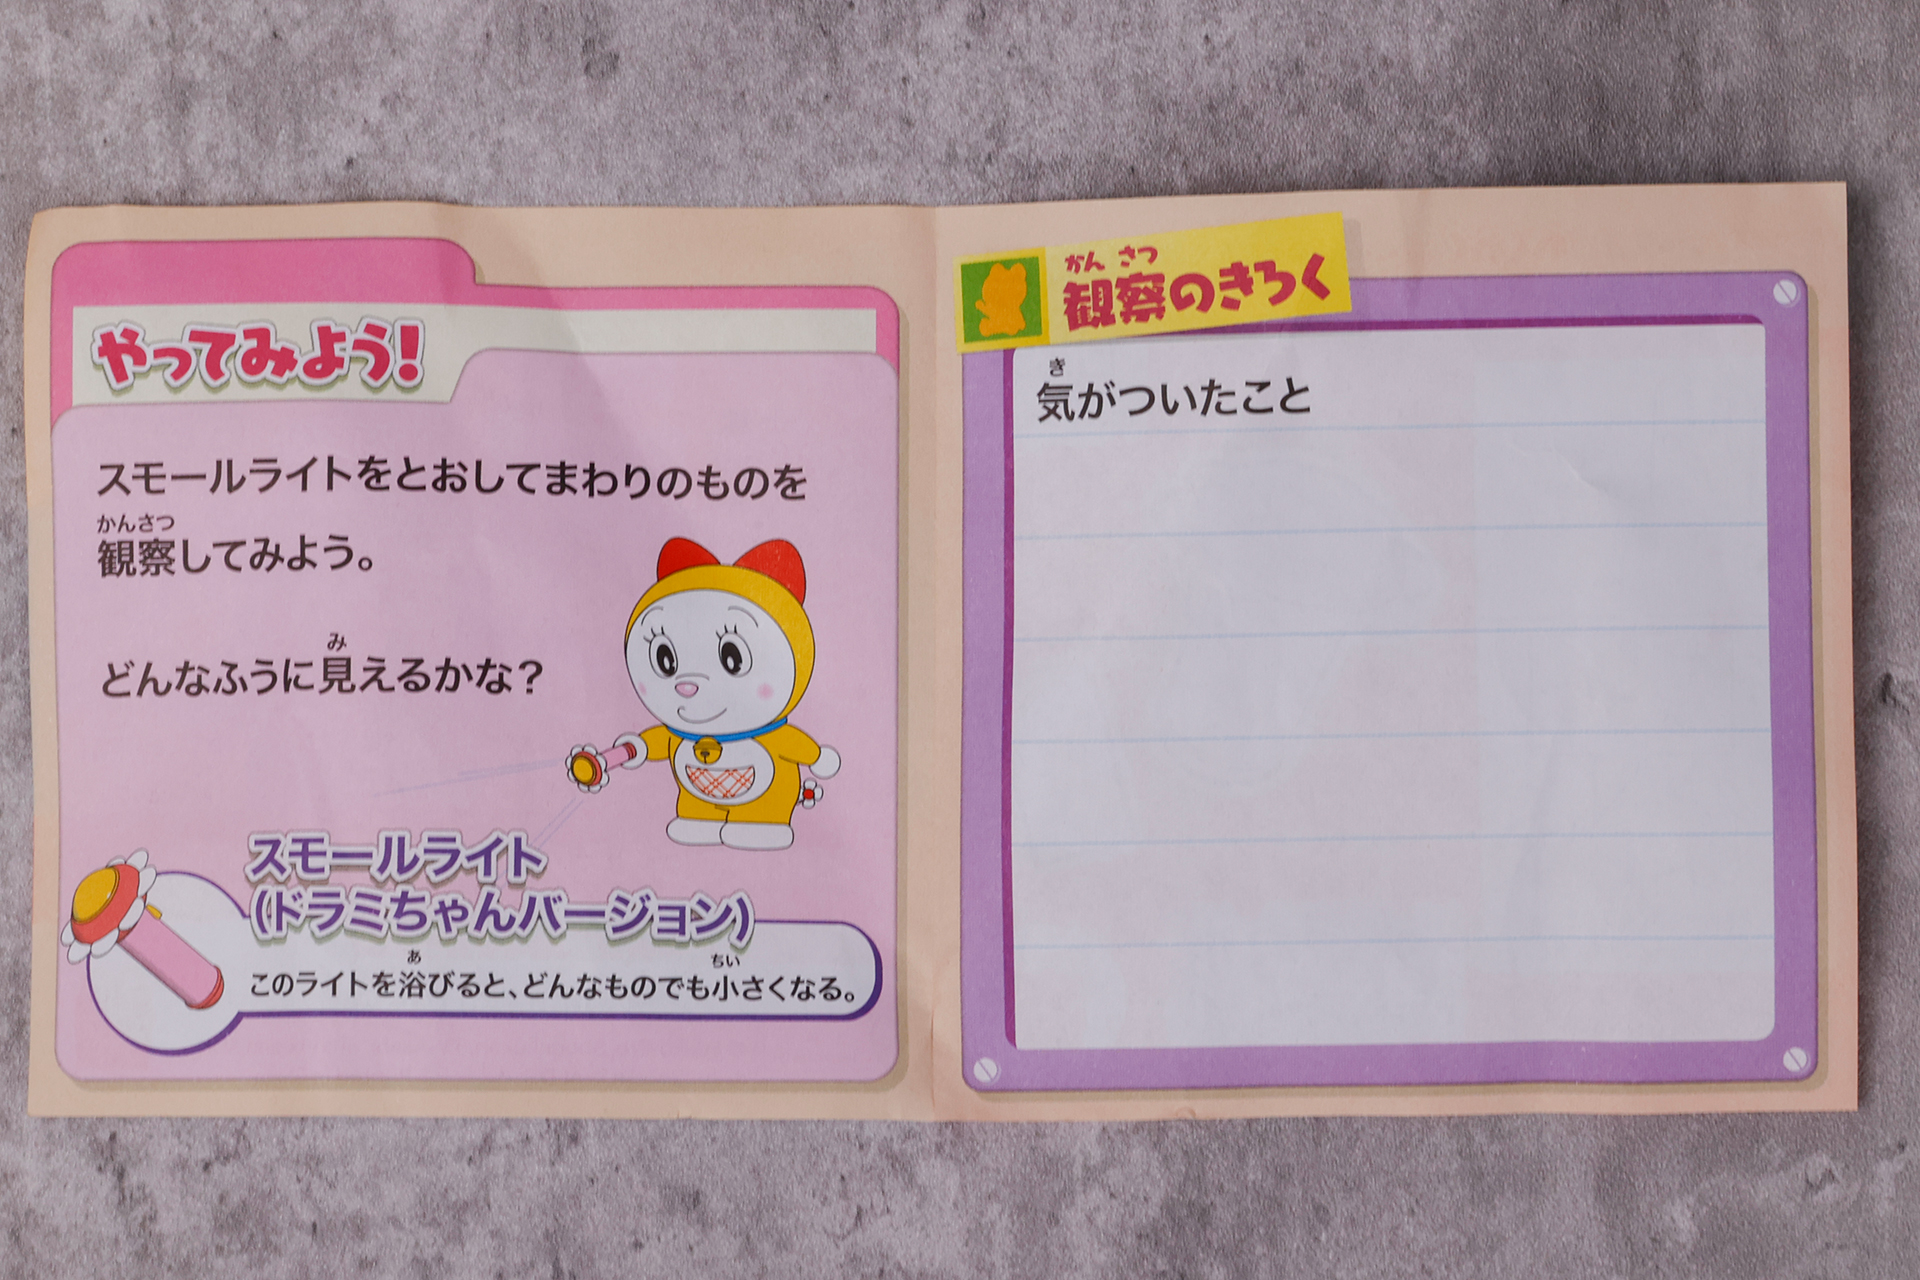 やってみよう!
スモールライトをとおしてまわりのものを
かんさつ
観察してみよう。
み
どんなふうに見えるかな?
スモールライト
(ドラミちゃんバージョン)
あ ちい
このライトを浴びると、どんなものでも小さくなる。
かん さつ
観察のきろく
き
気がついたこと